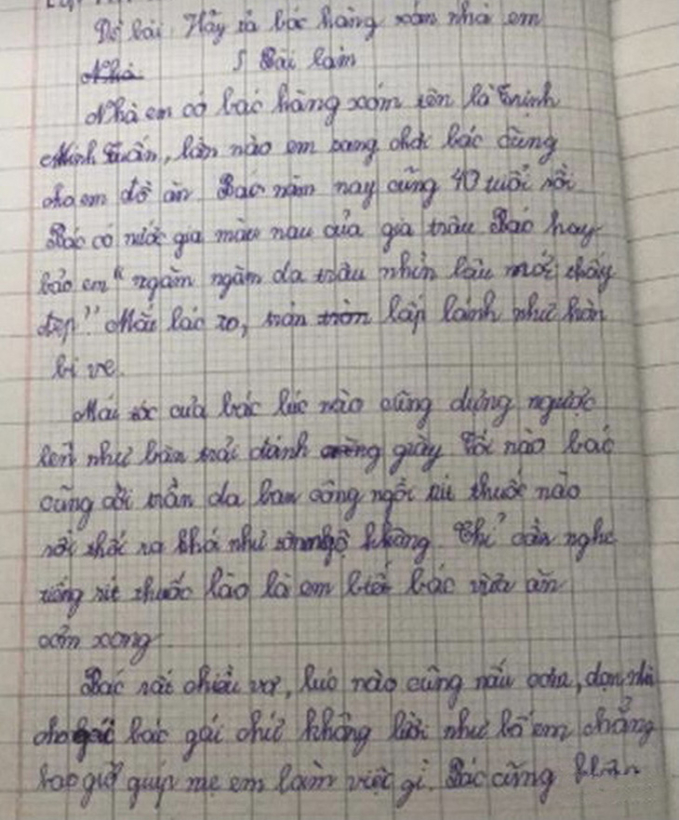 Đề bài: Hãy tả bác hàng xóm nhà em
Nhà
Bài làm
Nhà em có bác hàng xóm tên là Trịnh
Minh Tuấn, lần nào em sang chơi bác cũng
cho em đồ ăn. Bác năm nay cũng 40 tuổi rồi
Bác có nước gia màu nau của gia trâu Bác hay
bảo em "ngăm ngăm da trâu nhìn lâu mới thấy
đẹp" Mắt bác to, tròn lấp lánh như hòn
bi ve.
Mái tóc của bác lúc nào cũng dựng ngược
lên như bàn trải đánh giày Tối nào bác
cũng cởi trần da ban công ngồi rít thuốc nào
rồi thổi ra khói như khổng. Chỉ cần nghe
tiếng rít thuốc lào là em biết bác vừa ăn
cơm xong
Bác rất chiều vợ, lúc nào cũng nấu cơm, dọn nhà
cho bác gái chứ không lười như bố em chẳng
bao giờ giúp mẹ em làm việc gì. Bác cũng